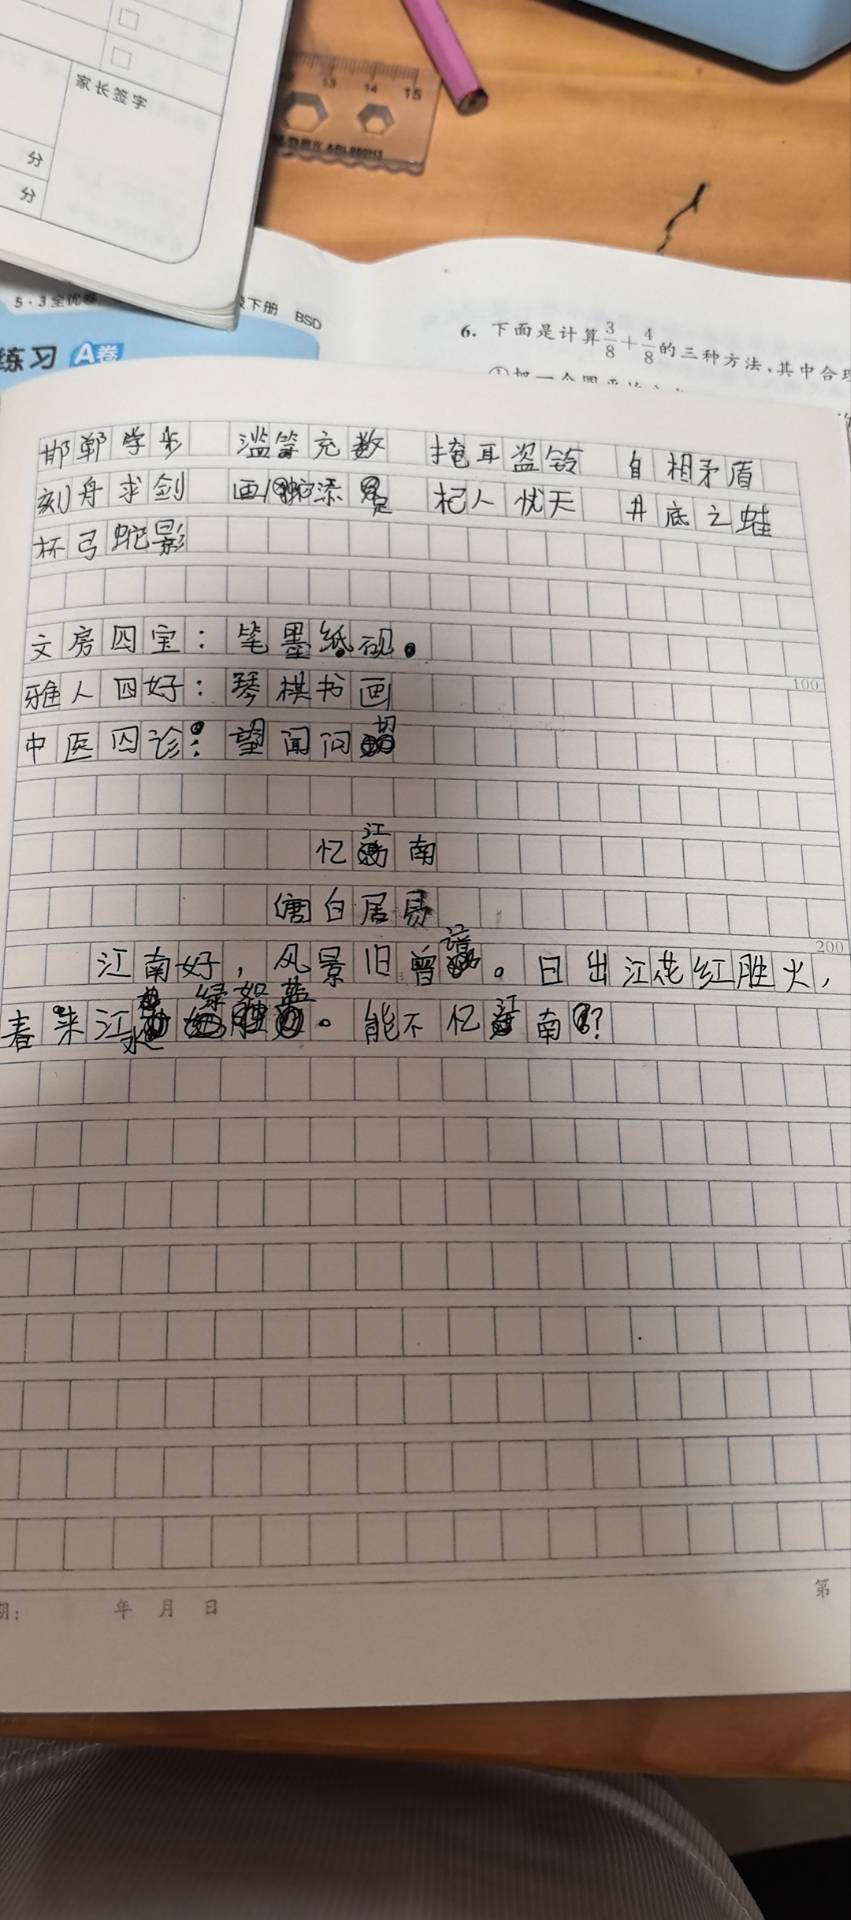 家长签字
分
分
13 14 15
5·3全优卷
级下册 BSD
练习 A卷
6. 下面是计算3/8+4/8的三种方法,其中合理
邯郸学步 滥竽充数 掩耳盗铃 自相矛盾
刻舟求剑 画蛇添足 杞人忧天 井底之蛙
杯弓蛇影
文房四宝:笔墨纸砚。
100
雅人四好:琴棋书画
中医四诊:望闻问切
忆江南
唐白居易
200
江南好,风景旧曾谙。日出江花红胜火,
春来江水绿如蓝。能不忆江南?
期: 年 月 日
第